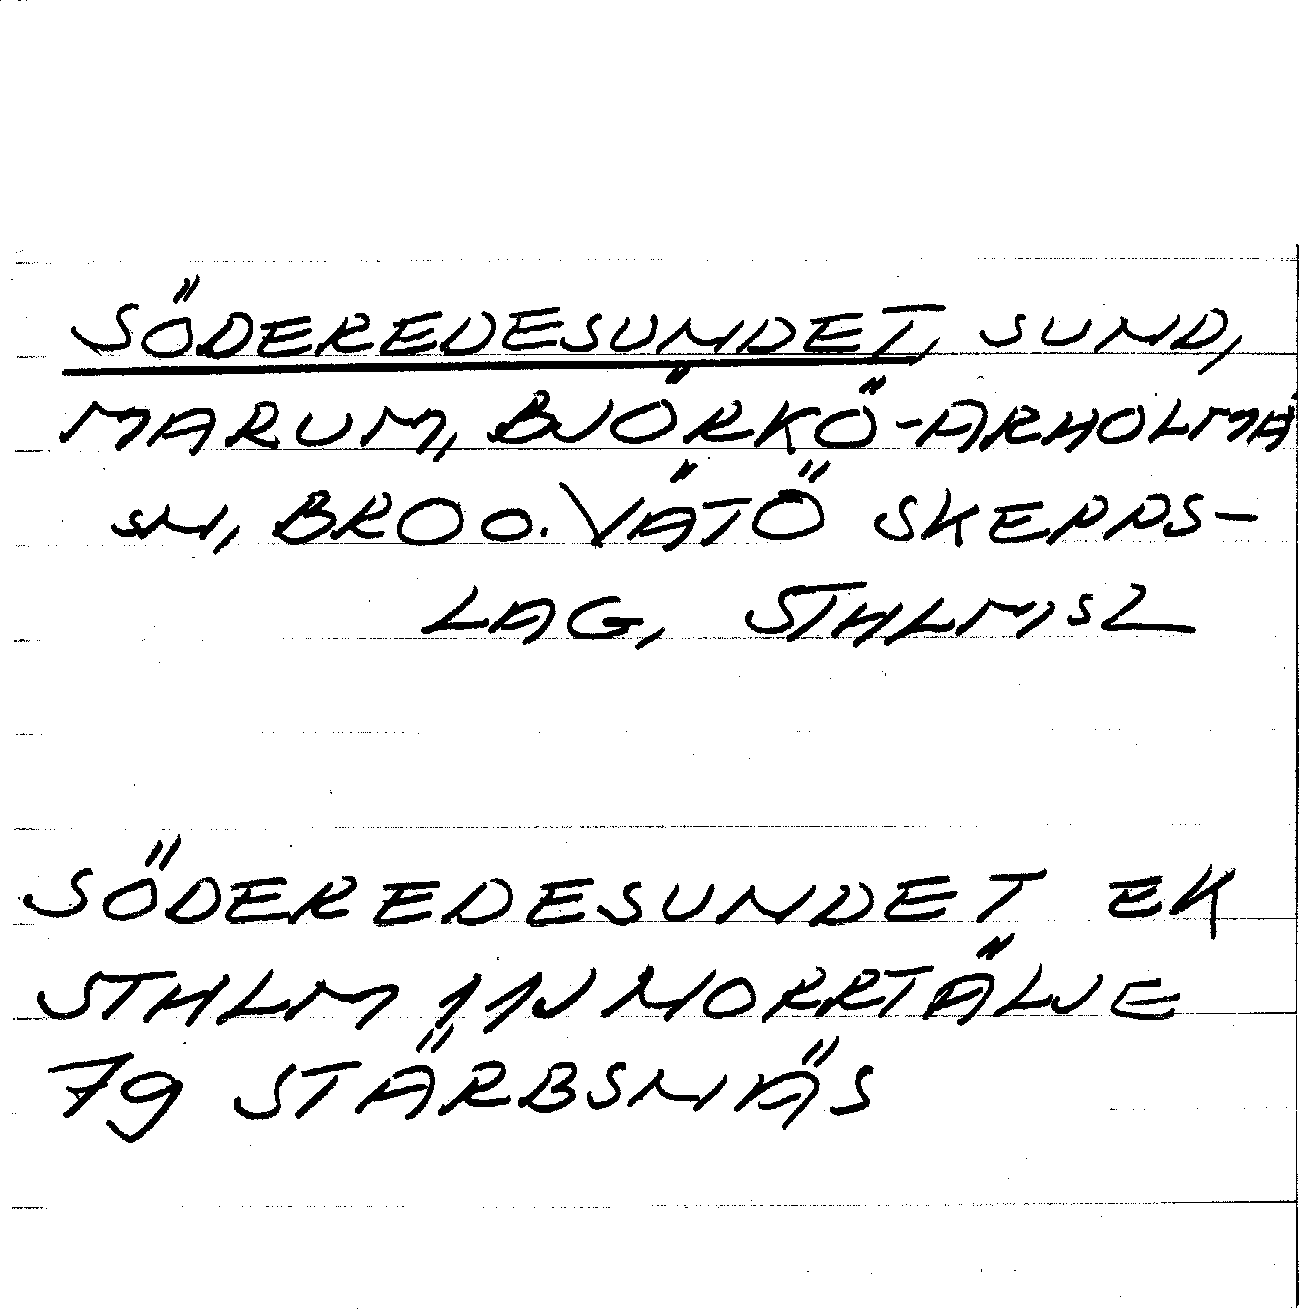 SÖDEREDESUNDET, SUND,
MARUM, BJÖRKÖ-ARHOLMA
SN, BRO O. VÄTÖ SKEPPS-
LAG, STHLMS L
SÖDEREDESUNDET EK
STHLM 11J NORRTÄLJE
79 STÄRBSNÄS